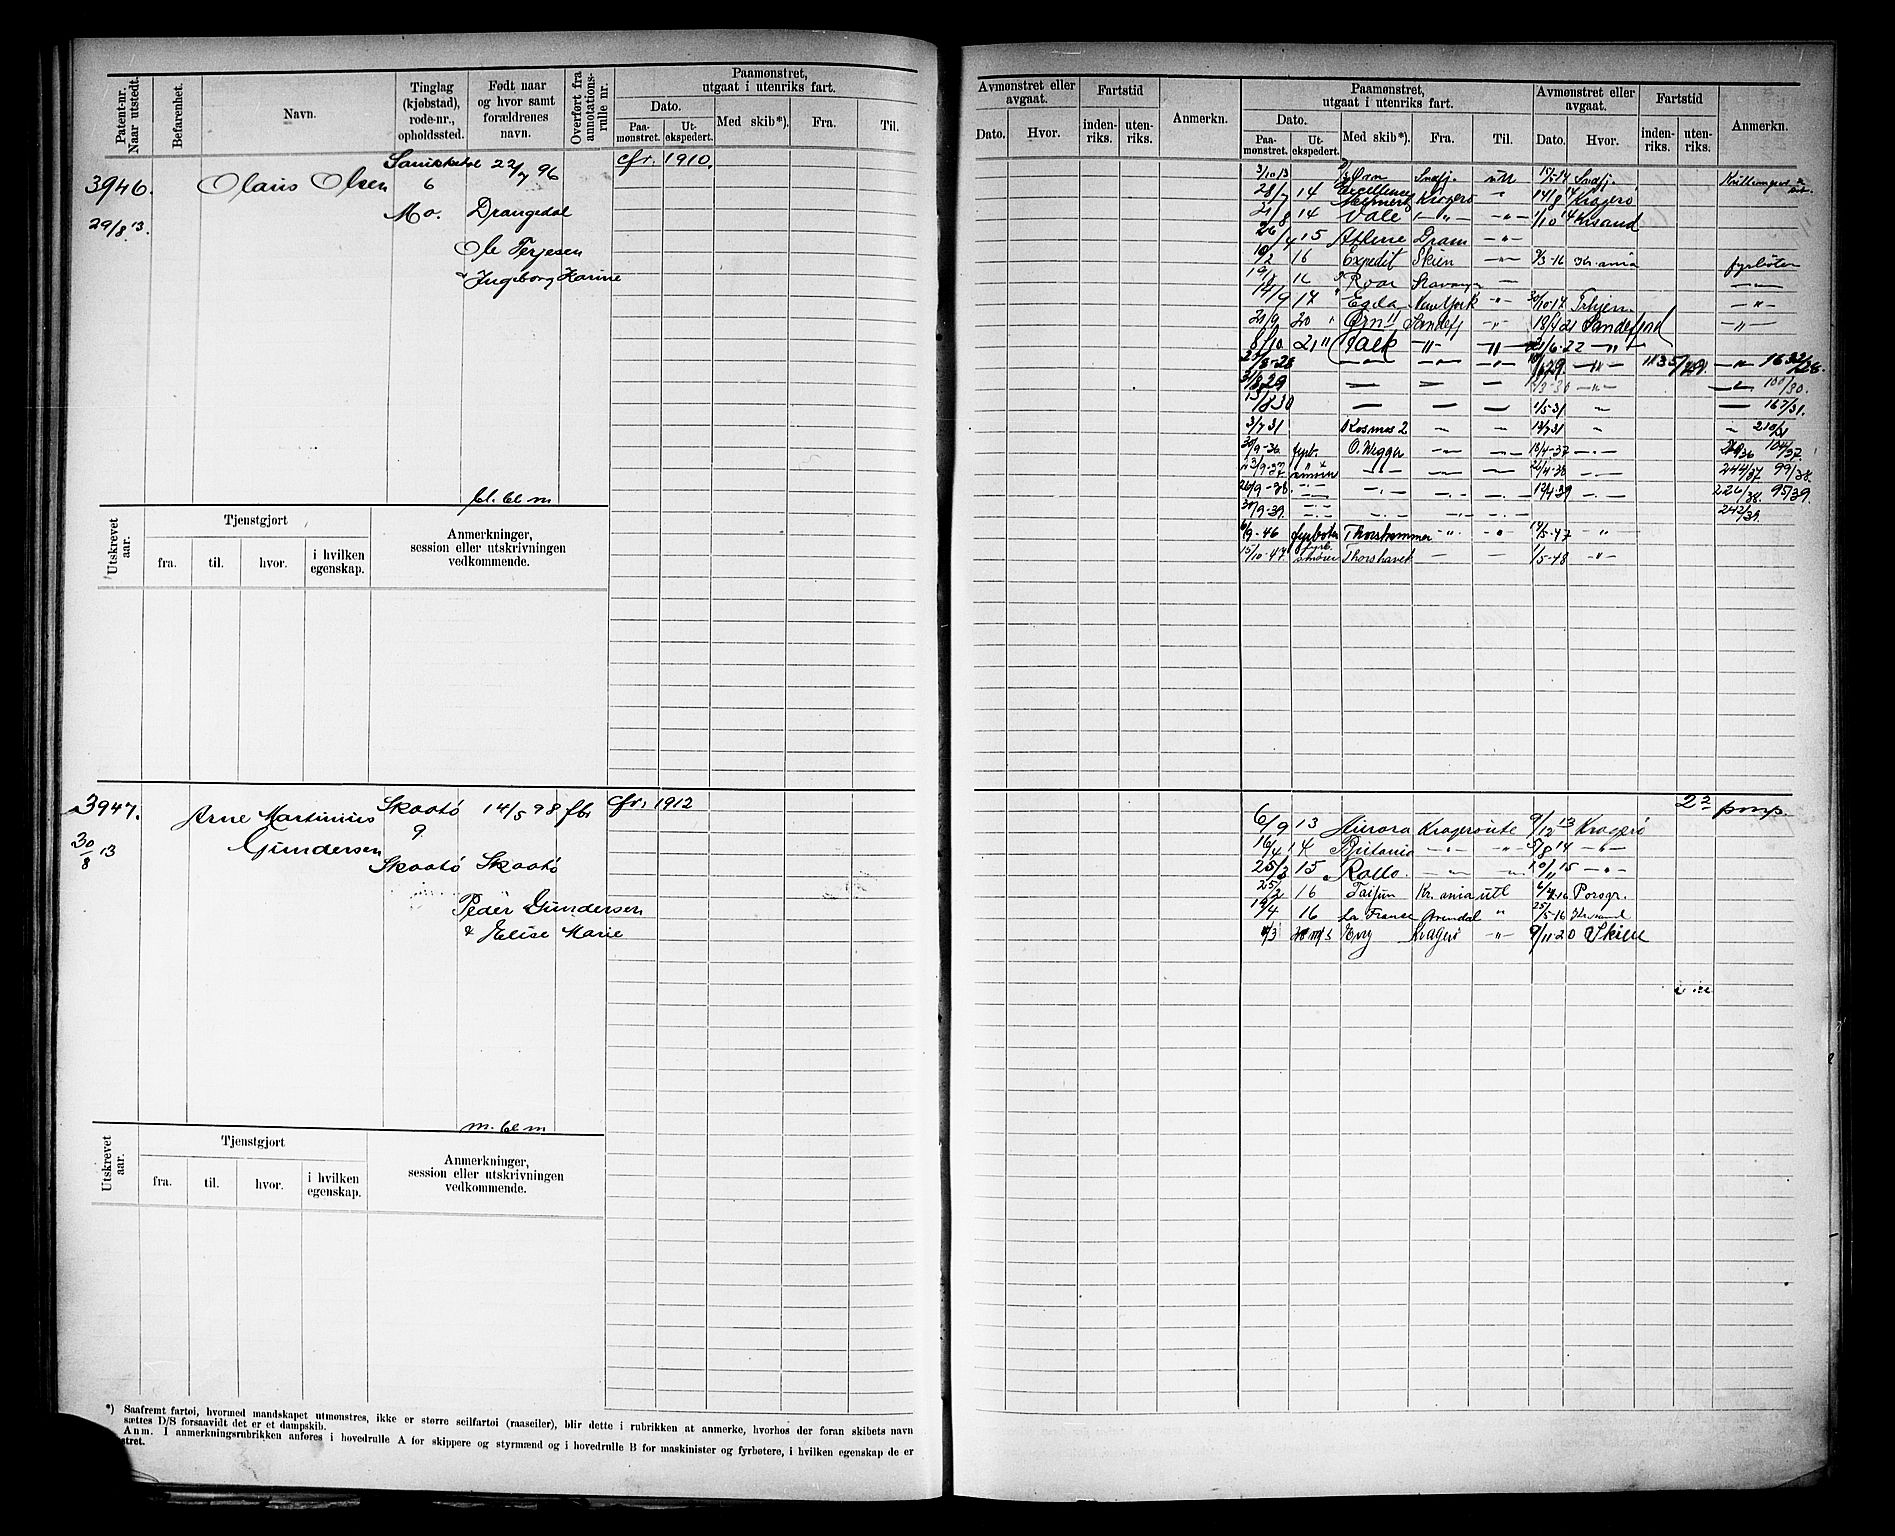 Patent-nr. Naar utstedt.
Befarenhet.
Navn.
Tinglag (kjøbstad), rode-nr., opholdssted.
Født naar og hvor samt forældrenes navn.
Overført fra annotations-rulle nr.
Paamønstret, utgaat i utenriks fart.
Dato.
Paa-mønstret.
Ut-ekspedert.
Med skib*).
Fra.
Til.
3946.
29/8.13.
Olaus Olsen
6
Mo.
22/7 96
Drangedal
Ole Terjesen
& Ingeborg Karine
cfr. 1910.
bl. bl m
Utskrevet aar.
Tjenstgjort
fra.
til.
hvor.
i hvilken egenskap.
Anmerkninger, session eller utskrivningen vedkommende.
3947.
30/8 13
Arne Martinius
Gundersen
Skaatö
9.
Skaatö
14/5 98
Skaatö
Peder Gundersen
& Elise Marie
cfr. 1912
m. bl m
Utskrevet aar.
Tjenstgjort
fra.
til.
hvor.
i hvilken egenskap.
Anmerkninger, session eller utskrivningen vedkommende.
*) Saafremt fartøi, hvormed mandskapet utmønstres, ikke er større seilfartøi (raaseiler), blir dette i rubrikken at anmerke, hvorhos der foran skibets navn
sættes D/S forsaavidt det er et dampskib.
Anm. I anmerkningsrubrikken anføres i hovedrulle A for skippere og styrmænd og i hovedrulle B for maskinister og fyrbøtere, i hvilken egenskap de er
tret.
Avmønstret eller avgaat.
Dato.
Hvor.
Fartstid
inden-riks.
uten-riks.
Anmerkn.
Paamønstret, utgaat i utenriks fart.
Dato.
Paa-mønstret.
Ut-ekspedert.
Med skib*).
Fra.
Til.
Avmønstret eller avgaat.
Dato.
Hvor.
Fartstid
inden-riks.
uten-riks.
Anmerkn.
3/10 13 Ørn Sndfj. Sndfj.
28/7 14 Excellence Kragerö 14/8 14 Kragerö
21/8 14 Vale - " - - " - 1/10 14 Krsand
26/4 15 Dram - " -
10/2 16 Expedit Skien 9/3-16 Kr.ania fyrböter
16 Roar Stavanger
14/9 17 Egda New York " 30/10-17 - " -
21/9 20 " Ørn II Sandefj - " - 18/4 21 Sandefjord - " -
8/10 21 " Falk - " - - " - 21/6-22 - " -
8-28 - " - - " - - " - 1632/28.
29 100/30.
13/8 30 1/5-31 " 167/31.
3/7 31 Kosmos 2 - - 12/7 31 " " 210/31
30/9-36 fyrb. O. Wegger 13/4-37 104/37.
23/9-37 22/4-38 244/37 99/38.
26/9-38. 12/4-39 226/38. 95/39
30/9-39. 242/39.
6/9-46 fyrböter Thorshammer - " - 14/5-47 "
15/10-47 fyrb. Thorshavet 1/5-48 - " -
6/9 13 Aurora Kragerö ute 9/12 13 Kragerö
16/4 14 Britania - " - - " - 5/8 14 - " -
25/3 15 Rollo - " - 10/11 15 - " -
25/2 16 Taifun Kr.ania utl 6/4-16 Porsgr.
14/4 16 La France Arendal " 25/5-16 Krsand
Kragerö - " - 9/11-20 Skien